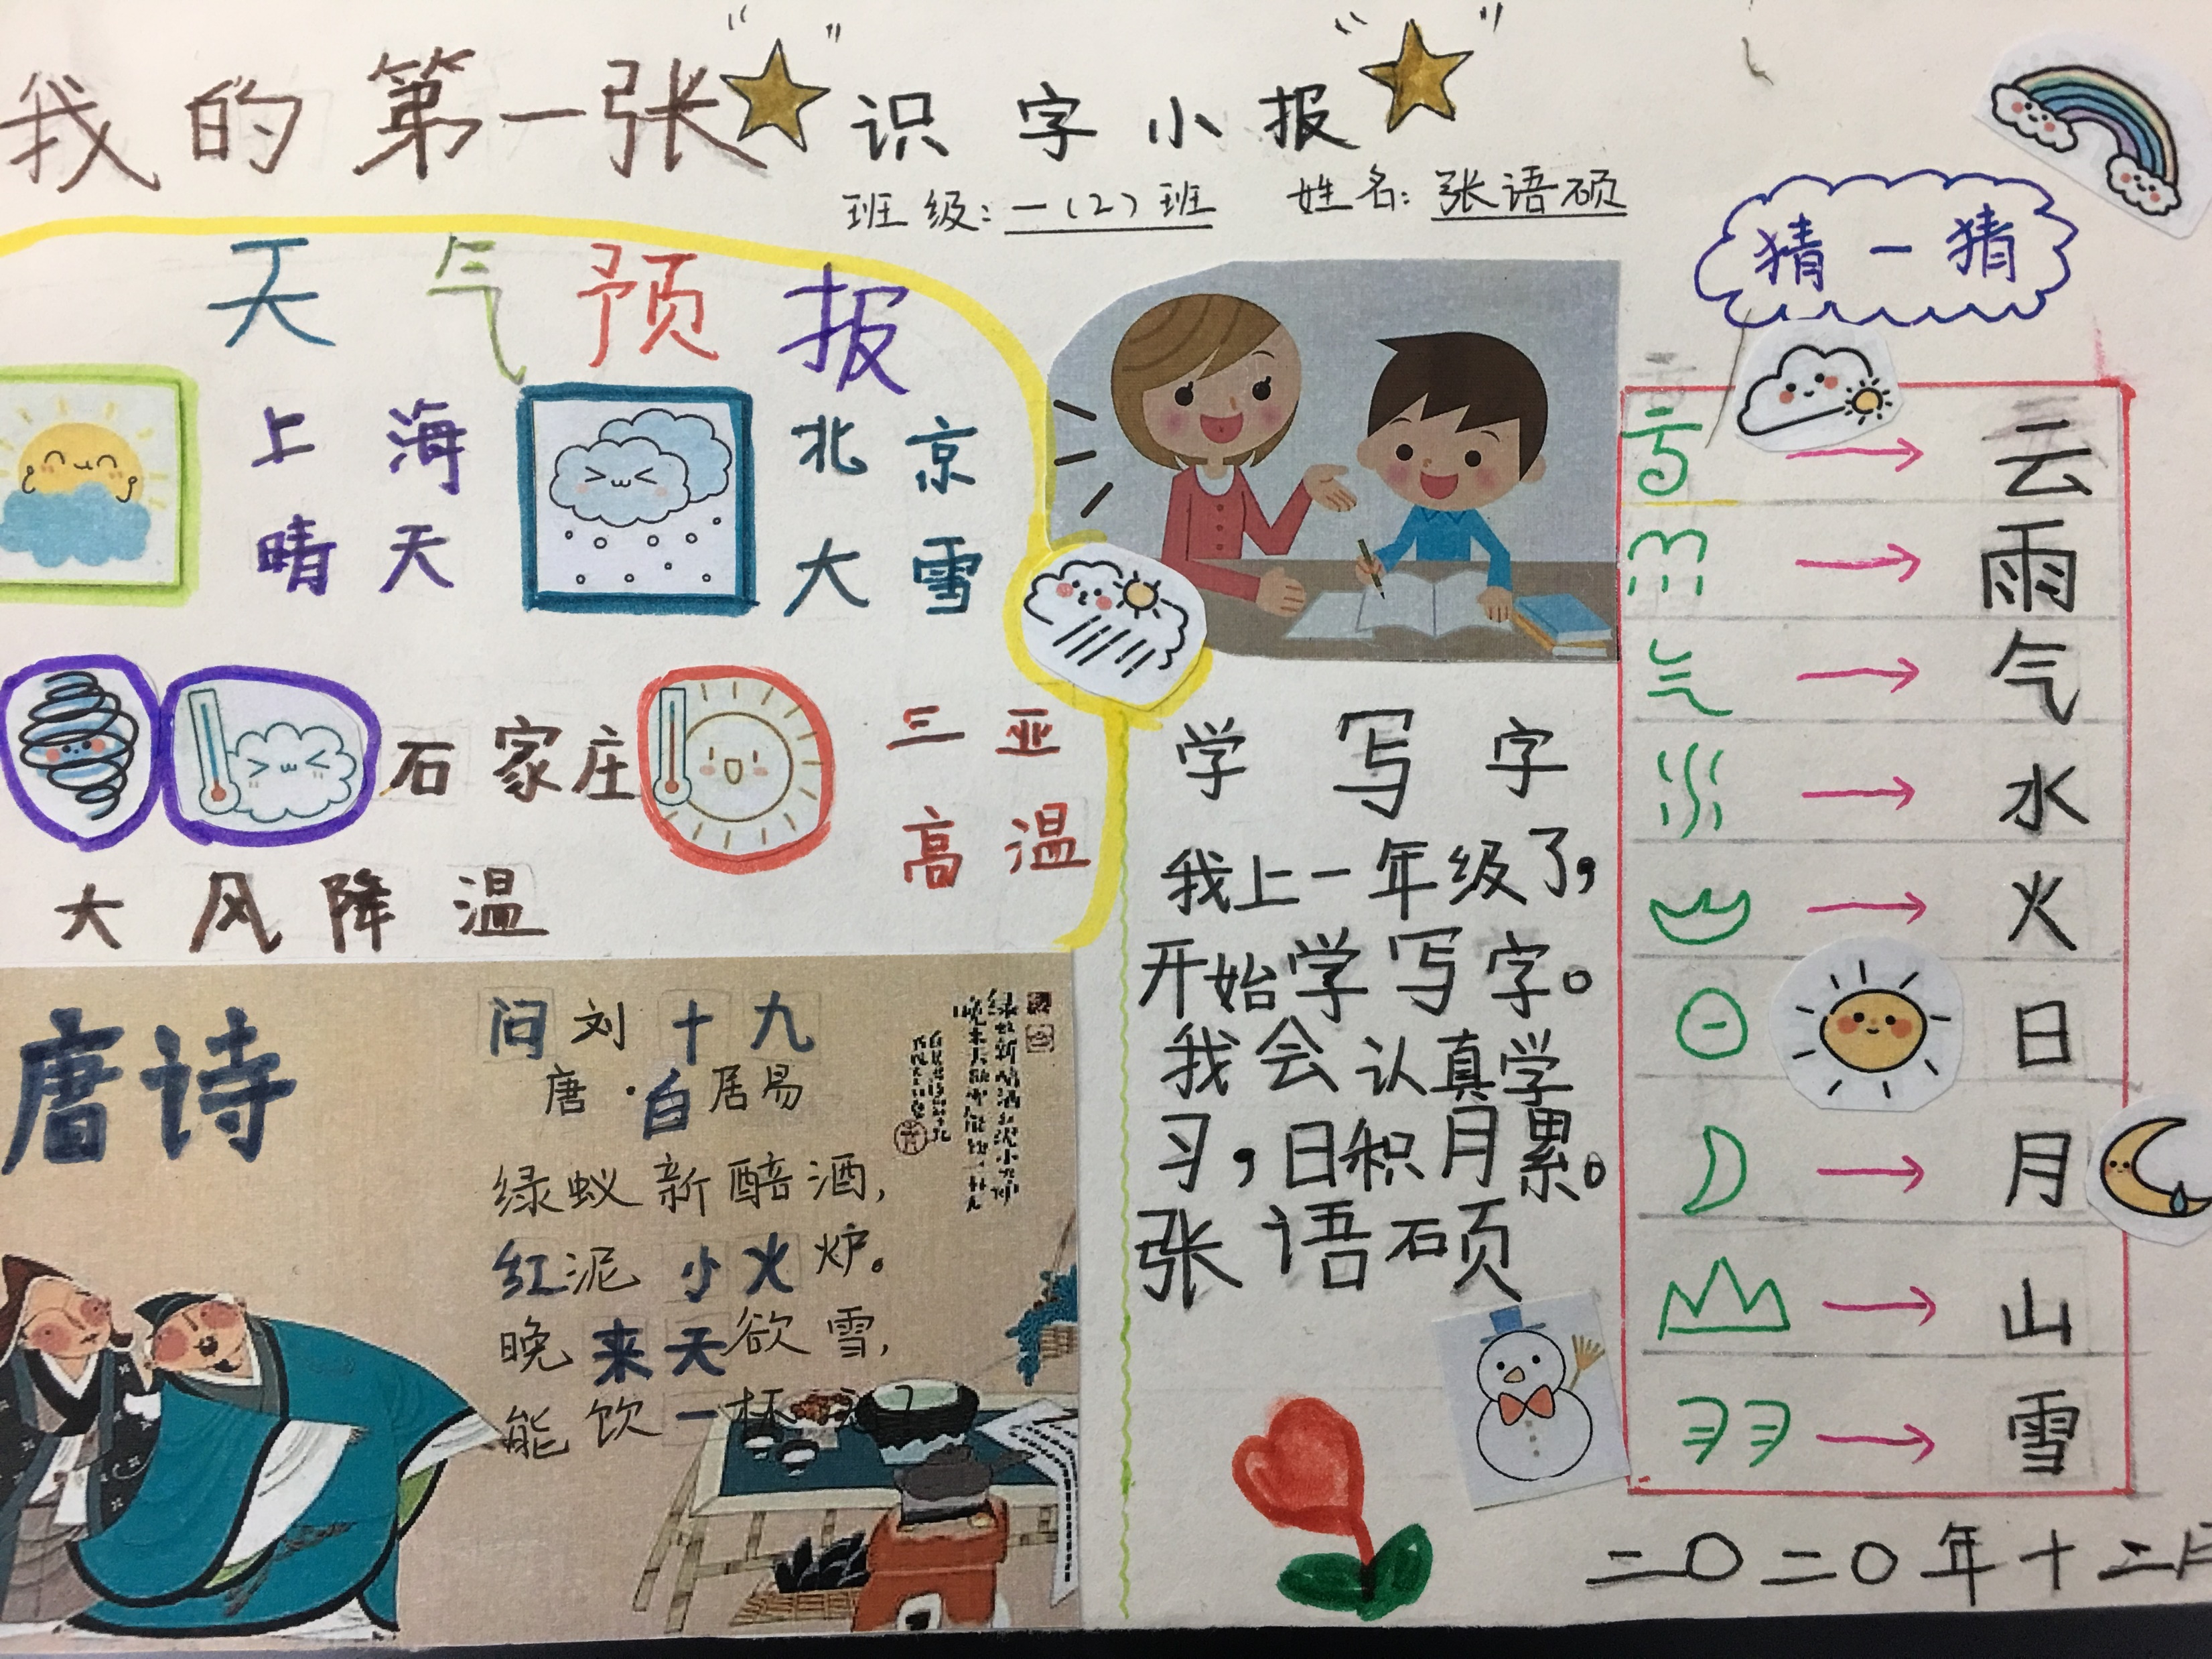 我的第一张“★”识字小报“★”
班级：一（2）班 姓名：张语硕
天气预报
上海
晴天
北京
大雪
石家庄
大风降温
三亚
高温
唐诗
问刘十九
唐·白居易
绿蚁新醅酒，
红泥小火炉。
晚来天欲雪，
能饮一杯
学写字
我上一年级了，
开始学写字。
我会认真学
习，日积月累。
张语硕
猜一猜
→云
→雨
→气
→水
→火
日
→月
→山
→雪
二〇二〇年十二月